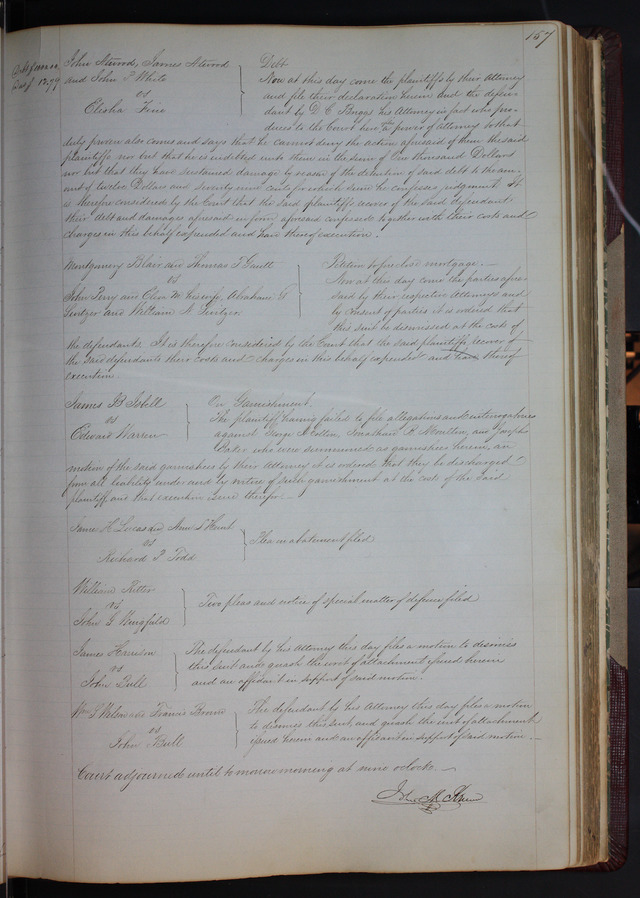 157
John Atwood, James Atwood
and John P White
vs
Elisha Fine
Debt
Now at this day come the plaintiffs by their Attorney
and file their declaration herein and the defen-
dant by D C Briggs his Attorney in fact who pro-
duces to the Court here a power of Attorney to that
duly proven also comes and says that he cannot deny the action aforesaid of them the said
plaintiffs nor but that he is indebted unto them in the sum of One thousand Dollars
nor but that they have sustained damage by reason of the detention of said debt to the am-
ount of twelve Dollars and seventy nine cents for which sum he confesses judgement. It
is therefore considered by the Court that the said plaintiffs recover of the said defendant
their debt and damages aforesaid in form aforesaid confessed together with their costs and
charges in this behalf expended and have thereof execution.
Montgomery Blair and Thomas T Gantt
vs
John Perry and Eliza M his wife, Abraham
and William
Petition to foreclose mortgage.
Now at this day come the parties afore-
said by their respective Attorneys and
by consent of parties it is ordered that
this suit be dismissed at the costs of
the defendants. It is therefore considered by the Court that the said plaintiffs recover of
the said defendants their costs and charges in this behalf expended and have thereof
execution.
James B Isbell
vs
Edward Warren
On Garnishment.
The plaintiff having failed to file allegations and interrogatories
against George Collon, Jonathan R. Moulton, and Joseph
who were summoned as garnishees herein, on
motion of the said garnishees by their Attorney it is ordered that they be discharged
from all liability under and by virtue of such garnishment at the costs of the said
plaintiff and that execution issue therefor.
James H Lucas and Ann L Hunt
vs
Richard P Todd
Plea in abatement filed
William Ritter
vs
John G
Two pleas and notice of special matter of defence filed
James Harrison
vs
John Bull
The defendant by his Attorney this day files a motion to dismiss
this suit and quash the writ of attachment issued herein
and an affidavit in support of said motion.
Wm S Nelson and Francis
vs
John Bull
The defendant by his Attorney this day files a motion
to dismiss this suit, and quash the writ of attachment
issued herein and an affidavit in support of said motion.
Court adjourned until tomorrow morning at nine oclock.
John M